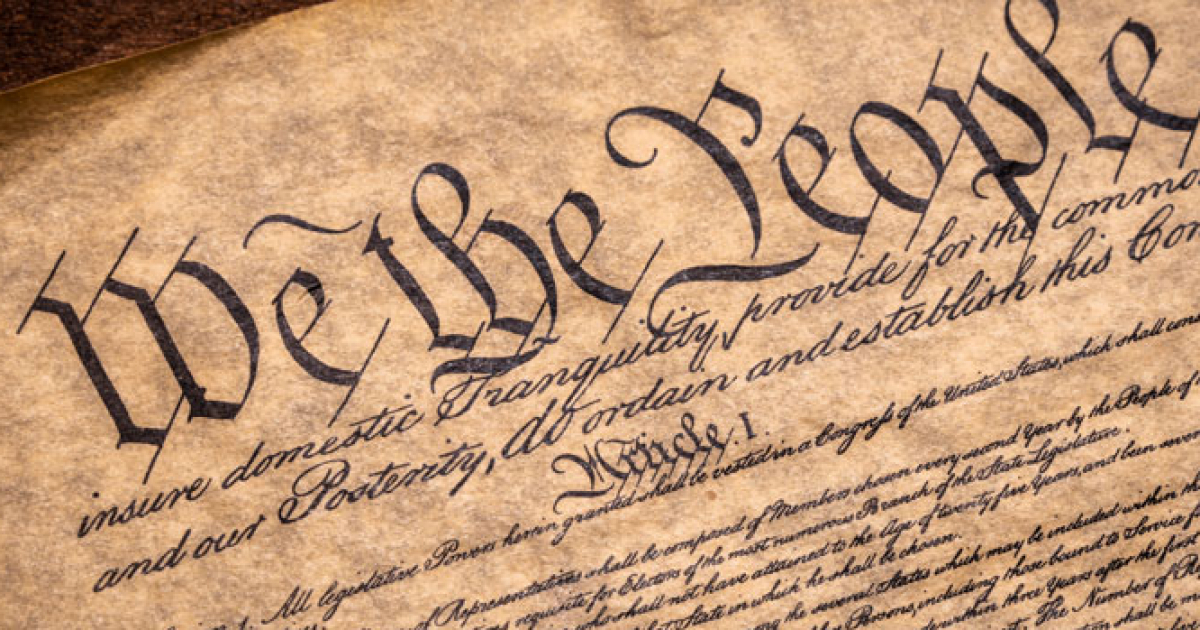 We the People
insure domestic Tranquility, provide for the commo
and our Posterity, do ordain and establish this Con
Article. I.
All legislative Powers herein granted shall be vested in a Congress of the United States, which shall cons
of Representatives shall be composed of Members chosen every second Year by the People of
requisite for Electors of the most numerous Branch of the State Legislature.
who shall not have attained to the Age of twenty five Years, and been
State in which he shall be chosen.
the several States which may be included within
Persons, including those bound to Service
within three Years after the first
The Number of